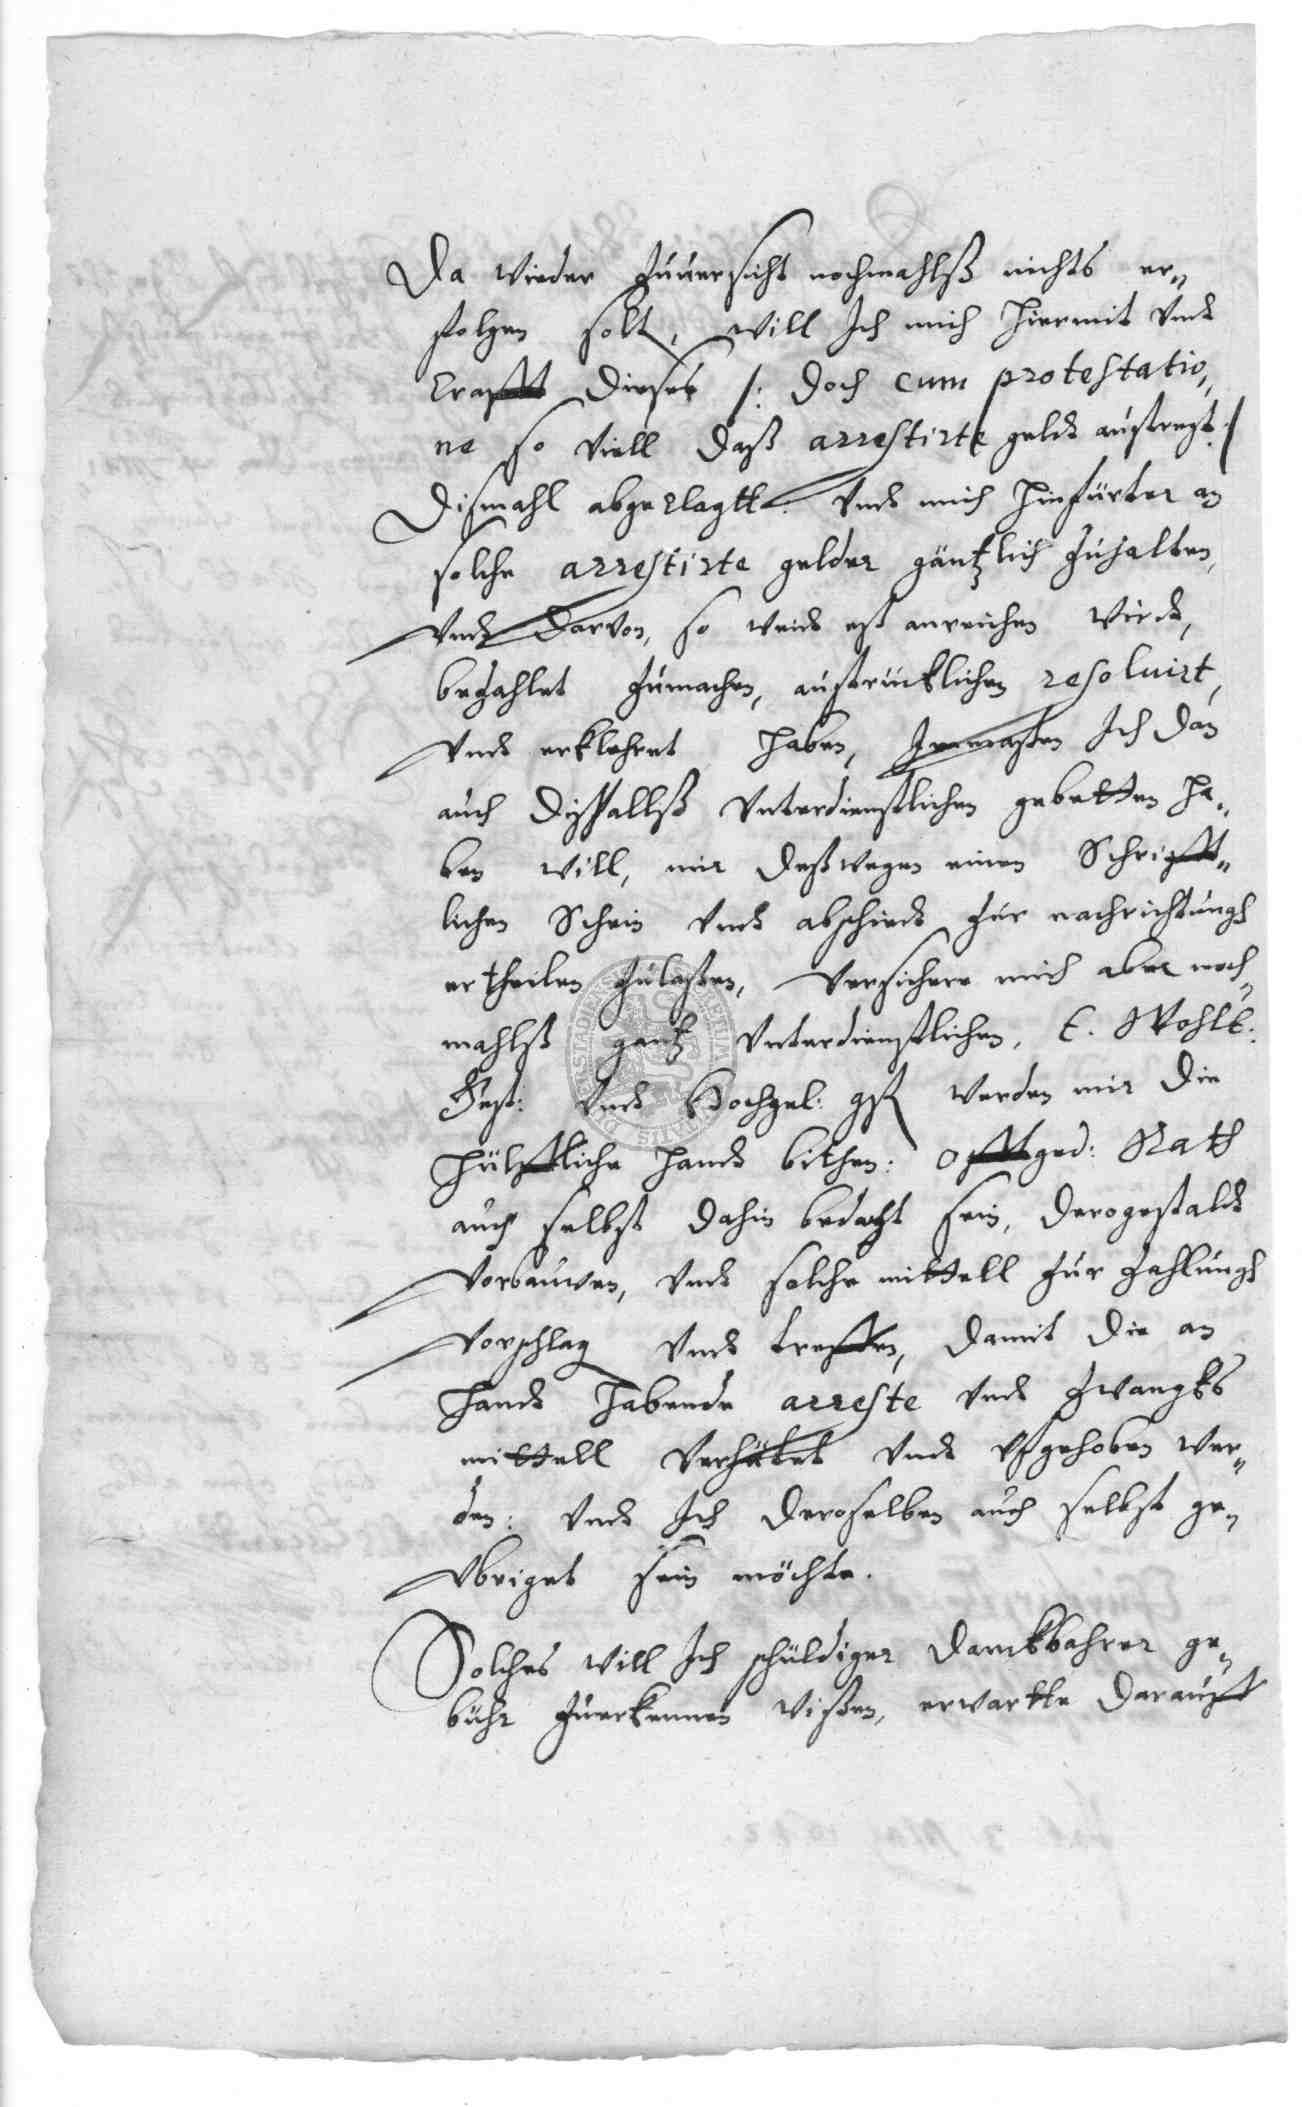 Da wieder Zuuersicht nochmahlß nichts er„
folgen solt, will Ich mich hiermit vndt
krafft dieses /: doch cum protestatio„
ne so viell daß arrestirte geldt austregt :/
dißmahl abgeklagtt. vndt mich hinfürter an
solche arrestirte gelder gäntzlich zuhalten,
vndt darvon, so weidt eß anreichen wirdt,
bezahlet zumachen, austrücklichen resoluirt,
vndt erklehret haben, Jnmaßen Ich dan
auch dißfallß vnterdienstlichen gebetten ha„
ben will, mir deßwegen einen Schrifft„
lichen Schein vndt abschiedt zur nachrichtungh
ertheilen zulaßen, versichere mich aber noch„
mahlß gantz vnterdienstlichen, E. WohlE:
Vest: vndt Hochgel: gst werden mir die
hülffliche handt bithen: offtged: Rath
auch selbst dahin bedacht sein, derogestaldt
vorbauwen, vndt solche mittell zur zahlungh
vorschlag vndt treffen, damit die an
handt habende arreste vndt Zwangks
mittell verhütet vndt vfgehoben wer„
den: vndt Ich deroselben auch selbst ge„
vbriget sein möchte.
Solches will Ich schüldiger danckbahrer ge„
bühr zuerkennen wißen, erwartte darauff